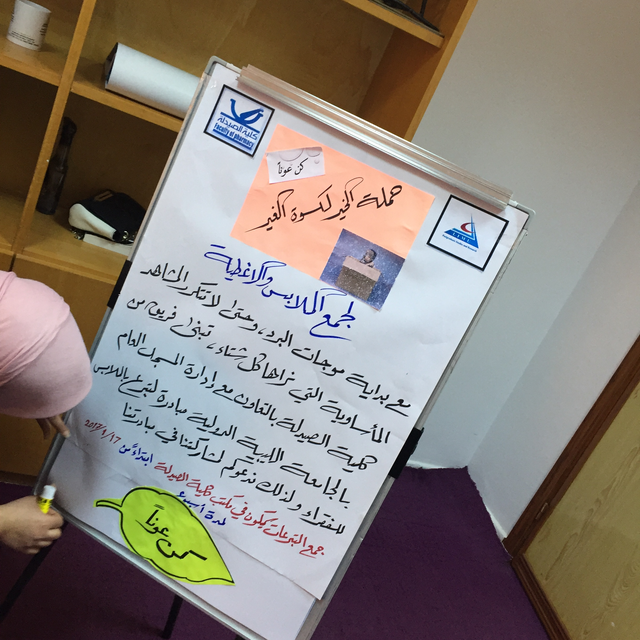 كلية الصيدلة
Faculty of pharmacy
كن عوناً
حملة الخير لكسوة الغير
لجمع الملابس والأغطية
مع بداية موجات البرد، وحتى لا تتكرر المشاهد
المأساوية التي نراها كل شتاء، تبنى فريق من
كلية الصيدلة بالتعاون مع إدارة المسجل العام
بالجامعة الليبية الدولية مبادرة لتبرع بالملابس
للفقراء ولذلك ندعوكم لمشاركتنا في مبادرتنا
جمع التبرعات يكون في مكتب كلية الصيدلة ابتداءً من 2017/1/17
لمدة أسبوع
كن عوناً